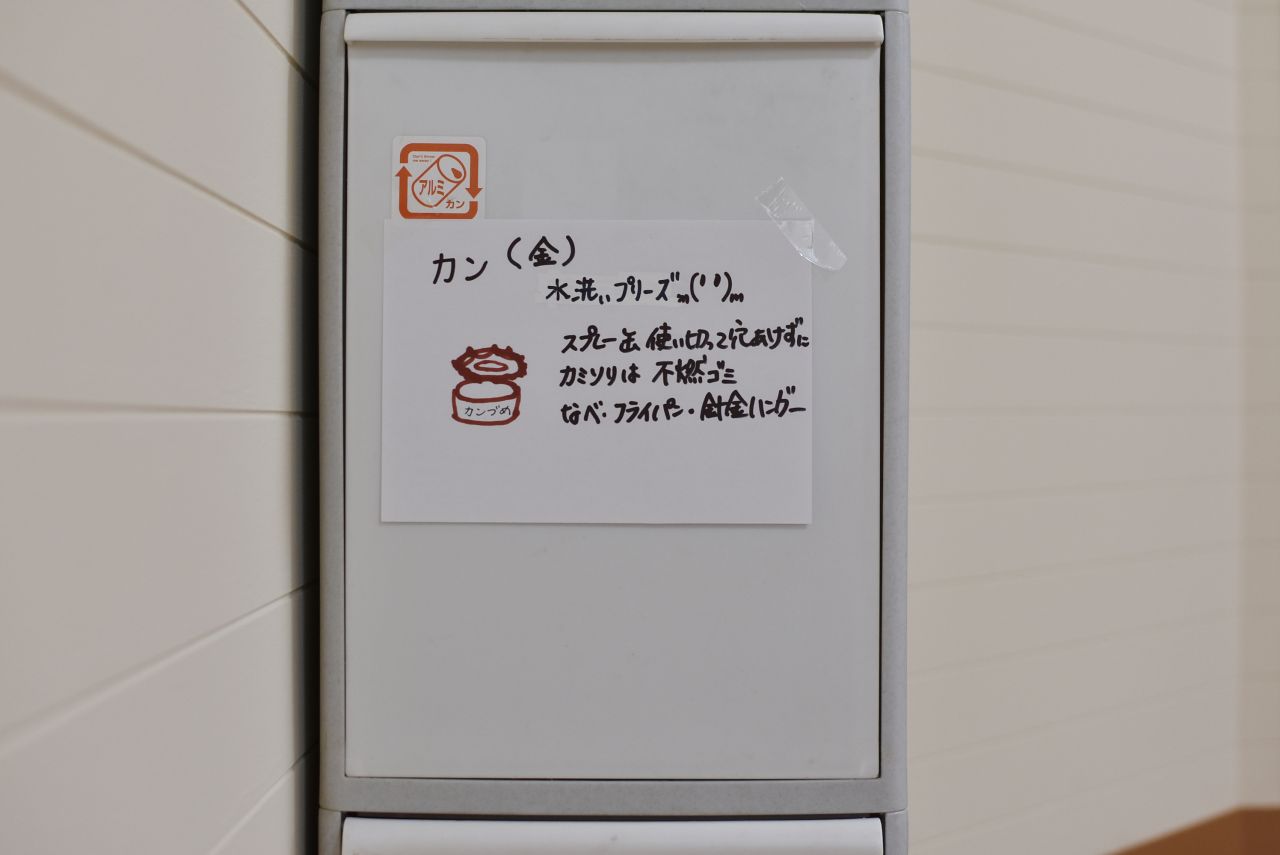 アルミ
カン
カン（金）
水洗いプリーズm(' ')m
スプレー缶 使い切って穴あけずに
カミソリは 不燃ゴミ
なべ・フライパン・針金ハンガー
カンづめ